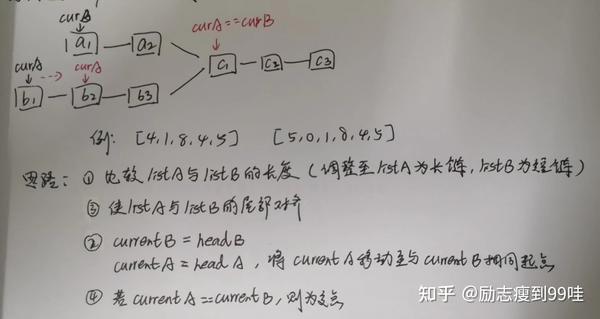 curB curA==curB
a1 a2 c1 c2 c3
curA curA
b1 b2 b3
例: [4,1,8,4,5] [5,0,1,8,4,5]
思路: ① 比较listA与listB的长度 (调整至listA为长链, listB为短链)
③ 使listA与listB的尾部对齐
② currentB = headB
currentA = headA, 将currentA移动至与currentB相同起点
④ 若currentA==currentB, 则为交点
知乎 @励志瘦到99哇